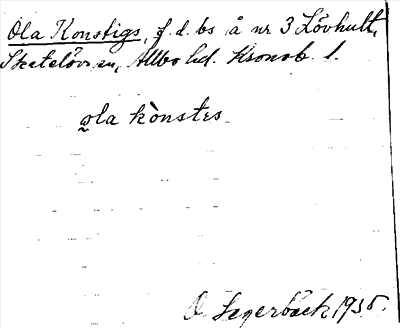 Ola Konstigs, f. d. bs å nr 3 Lövhult,
Skatelövs sn, Allbo hd. Kronob. l.
ola kònstes
O. Segerbäck 1935.